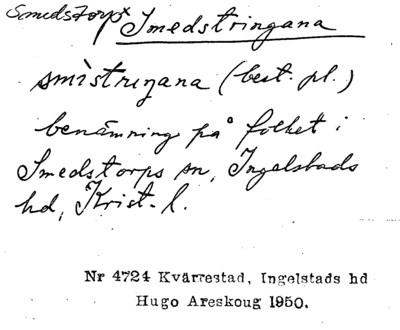 Smedstorps
Smedstringana
smìstriŋana (best. pl.)
benämning på folket i
Smedstorps sn, Ingelstads
hd, Krist. l.
Nr 4724 Kvärrestad, Ingelstads hd
Hugo Areskoug 1950.